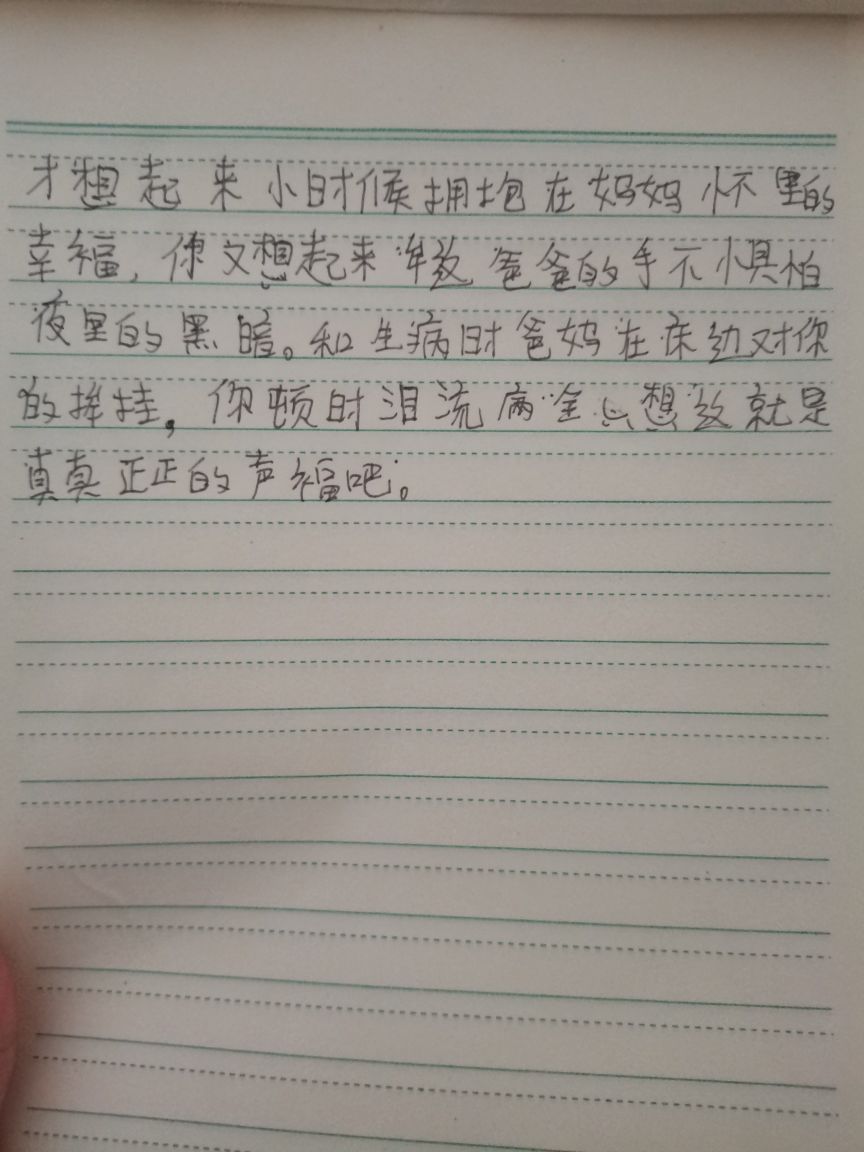 才想起来小时候拥抱在妈妈怀里的
幸福，你又想起来牵敌爸爸的手不惧怕
夜里的黑暗。和生病时爸妈在床边对你
的挂，你顿时泪流满全想这就是
真真正正的幸福吧。